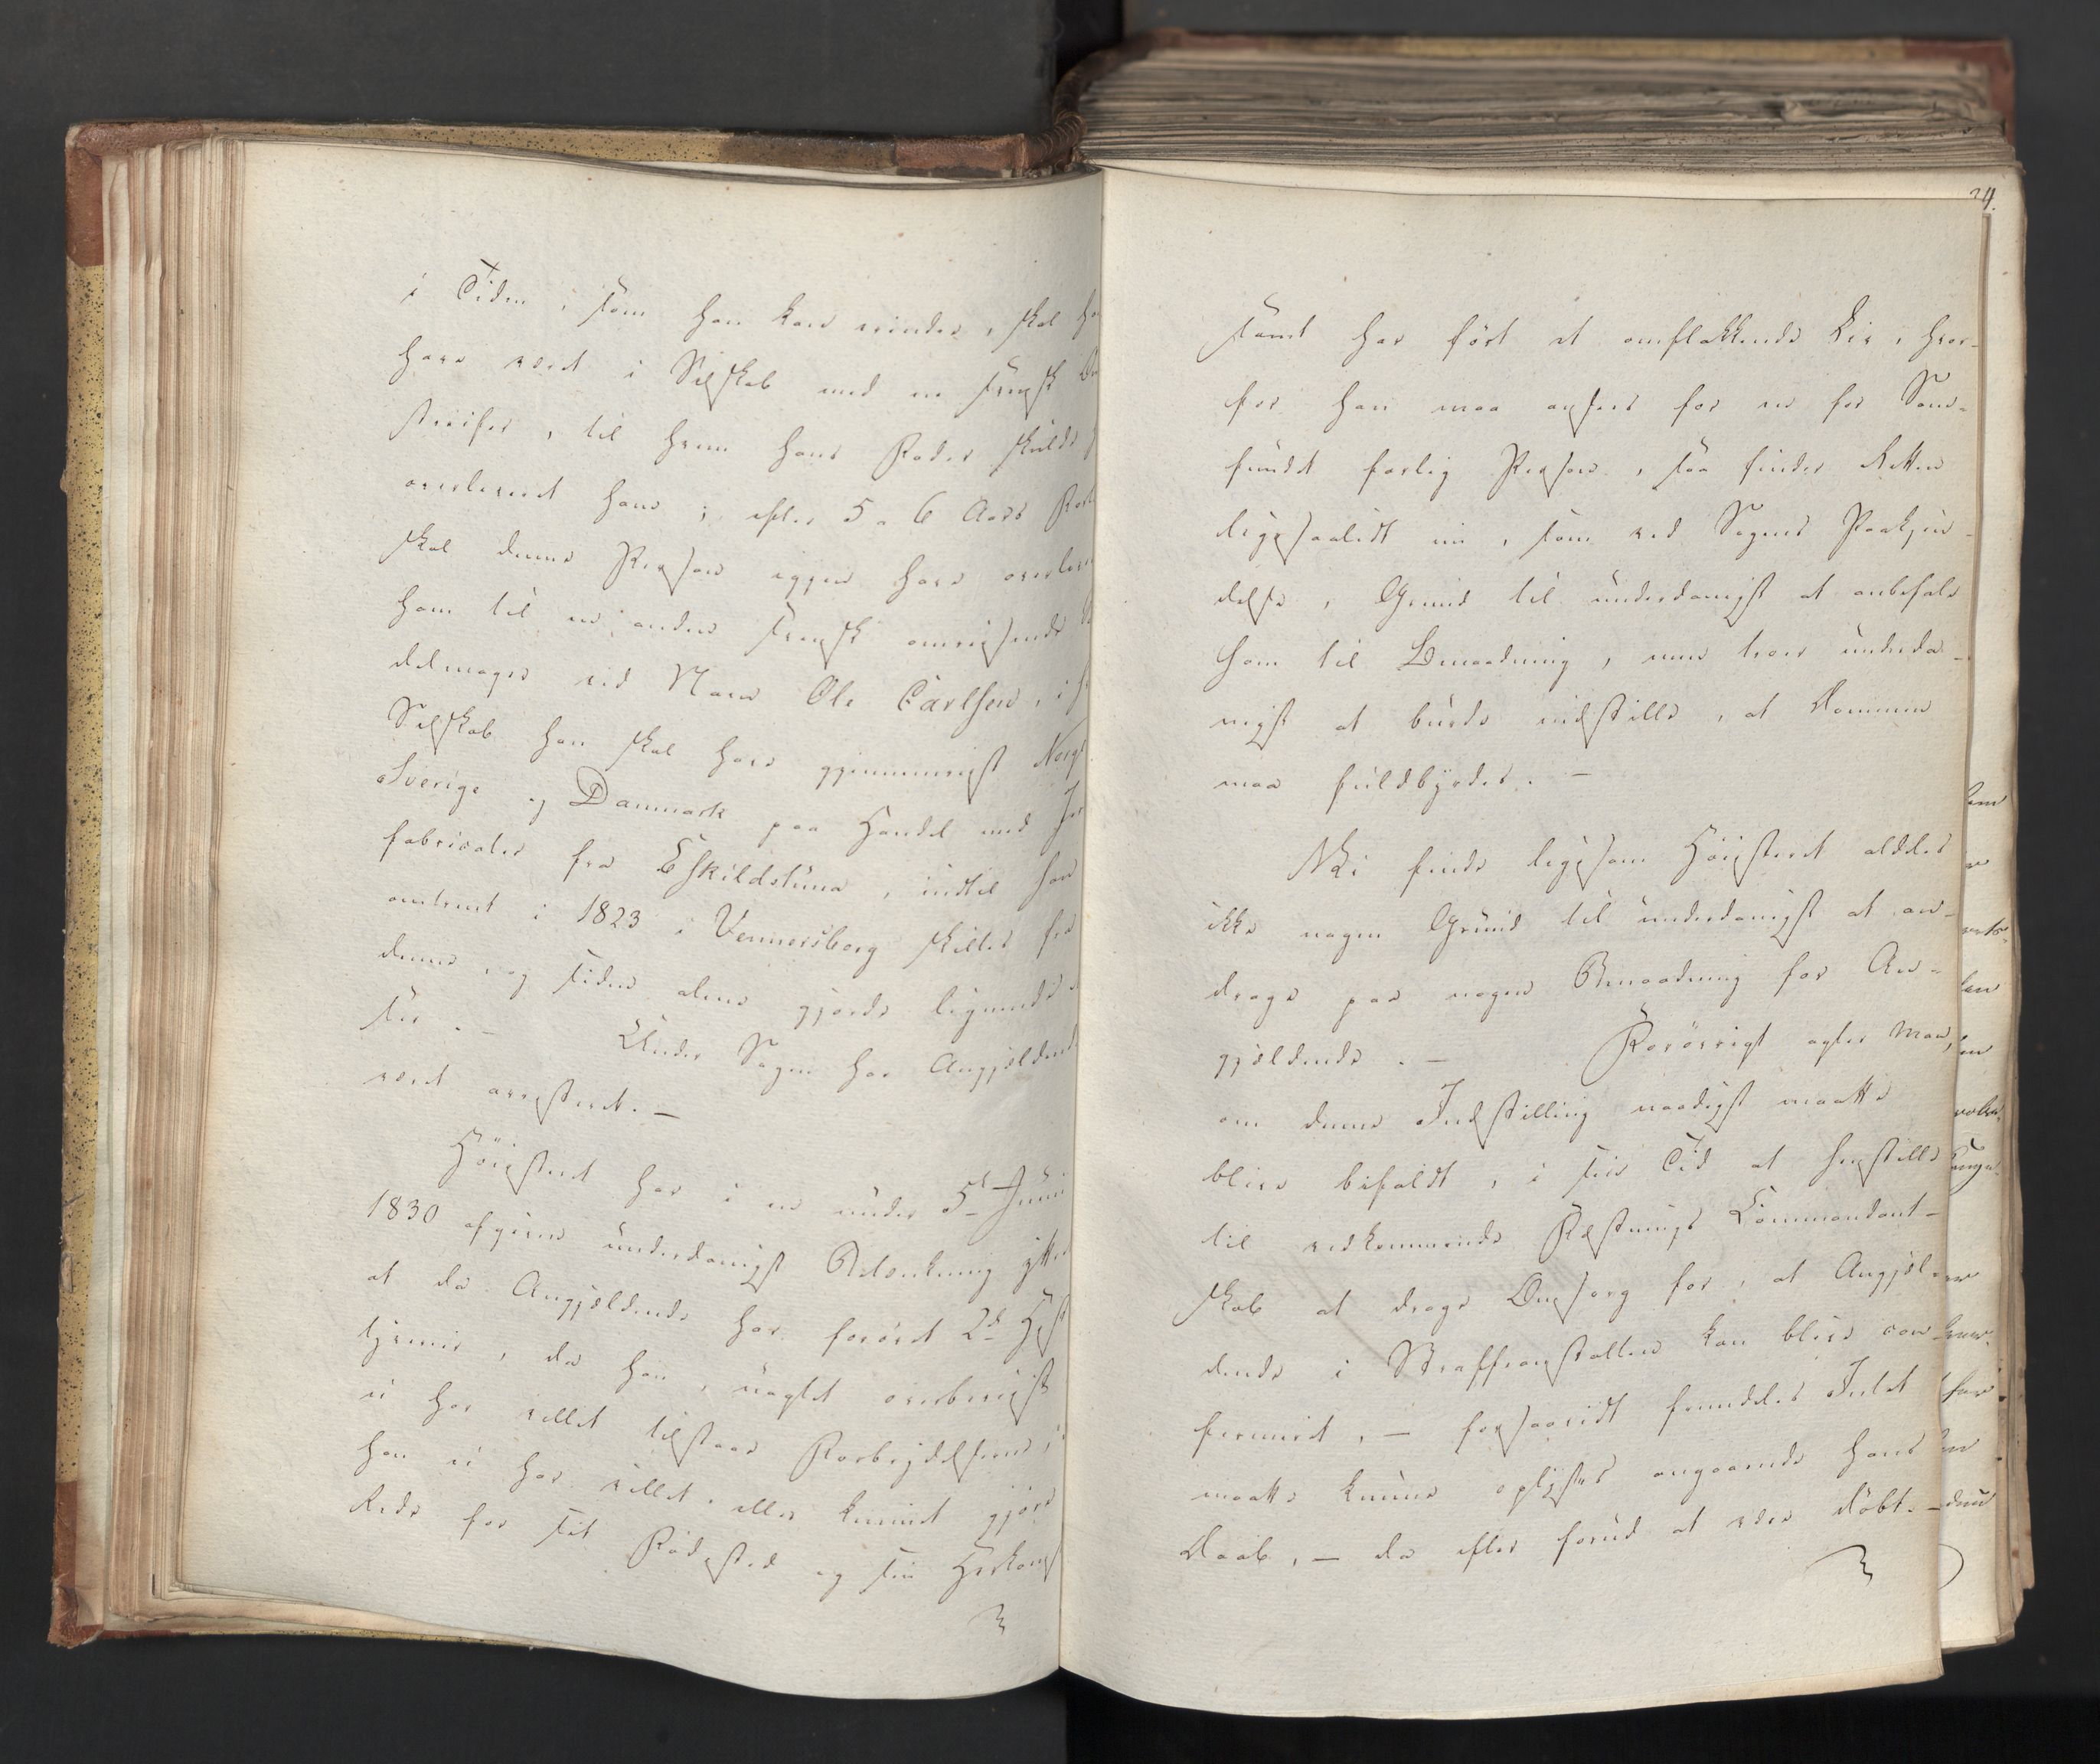 i Tiden, som han kan mindes, skal ha
have været i Selskab med en svensk
streifer, til hvem hans Fader skulde
overleveret ham; efter 5 a 6 Aars
skal denne Person igjen have overlev
ham til en anden svensk omreisende
delmager ved Navn Ole Carlsen, i
Selskab han skal have gjennemreist Norge
Sverige og Danmark paa Handel med Jer
fabricater fra Eskildstuna, indtil han
omtrent i 1823 i Vennersborg skiltes fra
denne, og siden alene gjorde lignende
ser. – Under Sagen har Angjældend
været arresteret. –
Höiesteret har i en under 5te Juni
1830 afgiven underdanigst Betænkning ytt
at da Angjældende har forøvet 2de Hest
tyverie, da han, uagtet overbeviist
ei har villet tilstaae Forbrydelserne,
han ei har villet eller kunnet gjøre
Rede for sit Födested og sin Herkomst
24.
samt har fört et omflakkende Liv, hvor-
for han maa ansees for en for Sam-
fundet farlig Person, saa finder Retten
ligesaalidt nu, som ved Sagens Paakjen-
delse, Grund til underdanigst at anbefale
ham til Benaadning, men troer underda-
nigst at burde indstille, at Dommen
maa fuldbyrdes. –
Vi finde ligesom Höiesteret aldeles
ikke nogen Grund til underdanigst at an-
drage paa nogen Benaadning for An-
gjældende. – Forövrigt agter man,
om denne Indstilling naadigst maatte
blive bifaldt, i sin Tid at henstille
til vedkommende Fæstnings Commandant-
skab at drage Omsorg for, at Angjæl-
dende i Straffeanstalten kan blive con-
firmeret, – forsaavidt fremdeles Intet
maatte kunne oplyses angaaende hans
Daab, – da efter forud at være döbt. –